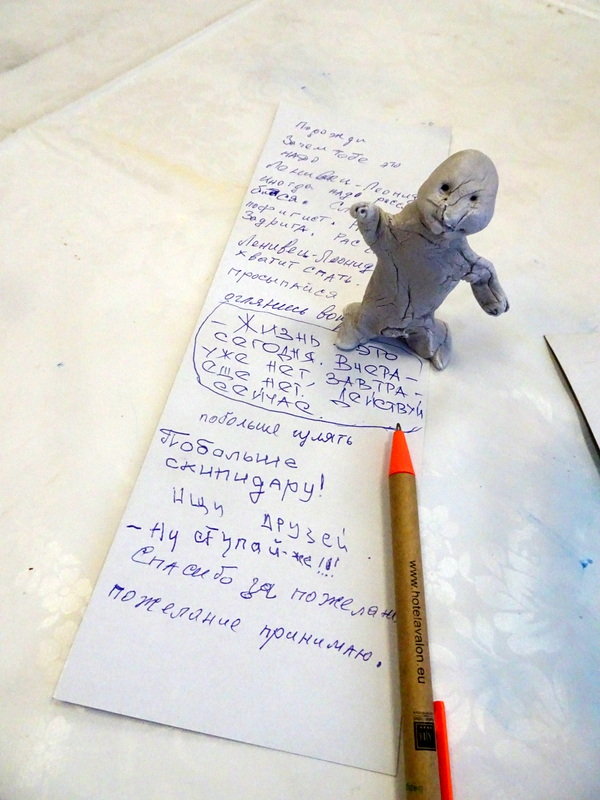 Подожди
Зачем тебе это
надо
Ленивец-Леонид
иногда надо
пофигист.
Задрига.
Ленивец-Леонид
хватит спать.
просыпайся
оглянись
- Жизнь это
сегодня. Вчера -
уже нет, завтра -
еще нет. Действуй
сейчас.
побольше гулять
Побольше
скипидару!
Ищи друзей.
- Ну ступай-же!!!
Спасибо за
пожелание принимаю.
www.hotelavalon.eu